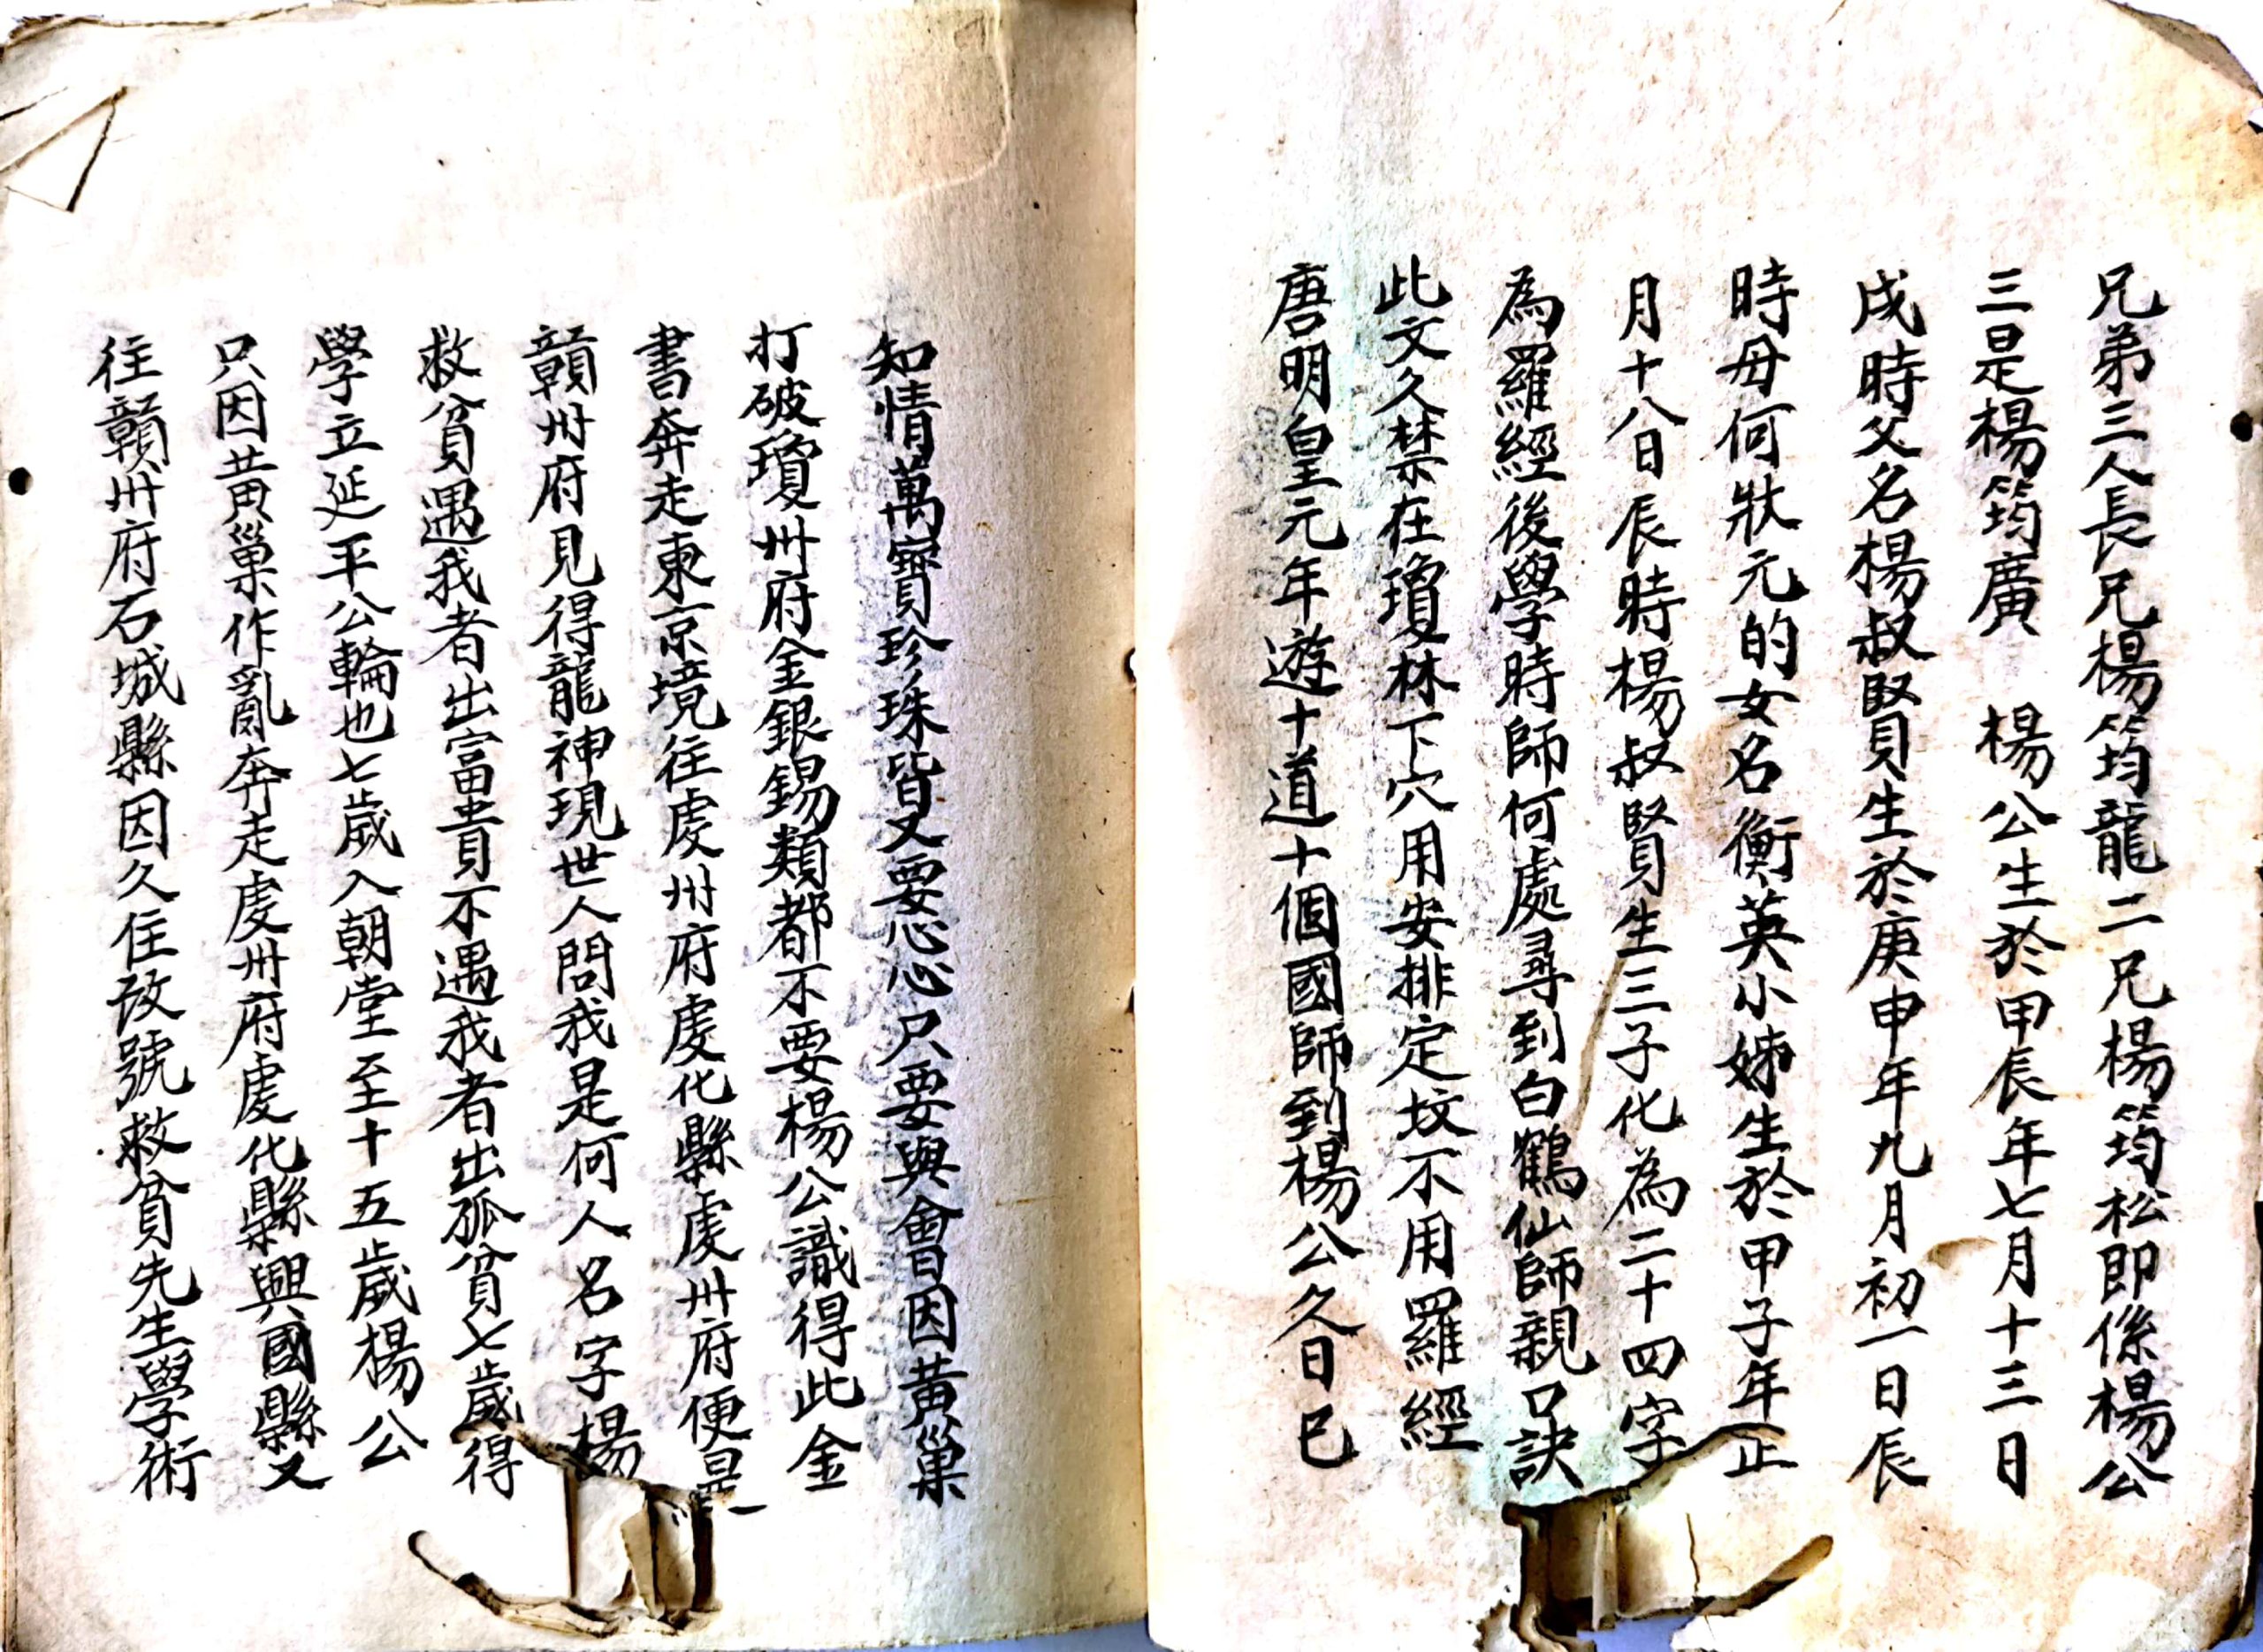 兄弟三人長兄楊筠龍二兄楊筠松即係楊公
三是楊筠廣　楊公生於甲辰年七月十三日
戌時父名楊叔賢生於庚申年九月初一日辰
時母何狀元的女名衡英小姊生於甲子年正
月十八日辰時楊叔賢生三子化為二十四字
為羅經後學時師何處尋到白鶴仙師親口訣
此文久禁在瓊林下穴用安排定坟不用羅經
唐明皇元年遊十道十個國師到楊公久日已
知情萬寶珍珠皆又要心心只要與會因黃巢
打破瓊州府金銀錫類都不要楊公識得此金
書奔走東京境往虔州府虔化縣虔州府便是
贛州府見得龍神現世人問我是何人名字楊
救貧遇我者出富貴不遇我者出孤貧七歲得
學立延平公輪也七歲入朝堂至十五歲楊公
只因黃巢作亂奔走虔州府虔化縣興國縣又
往贛州府石城縣因久住改號救貧先生學術